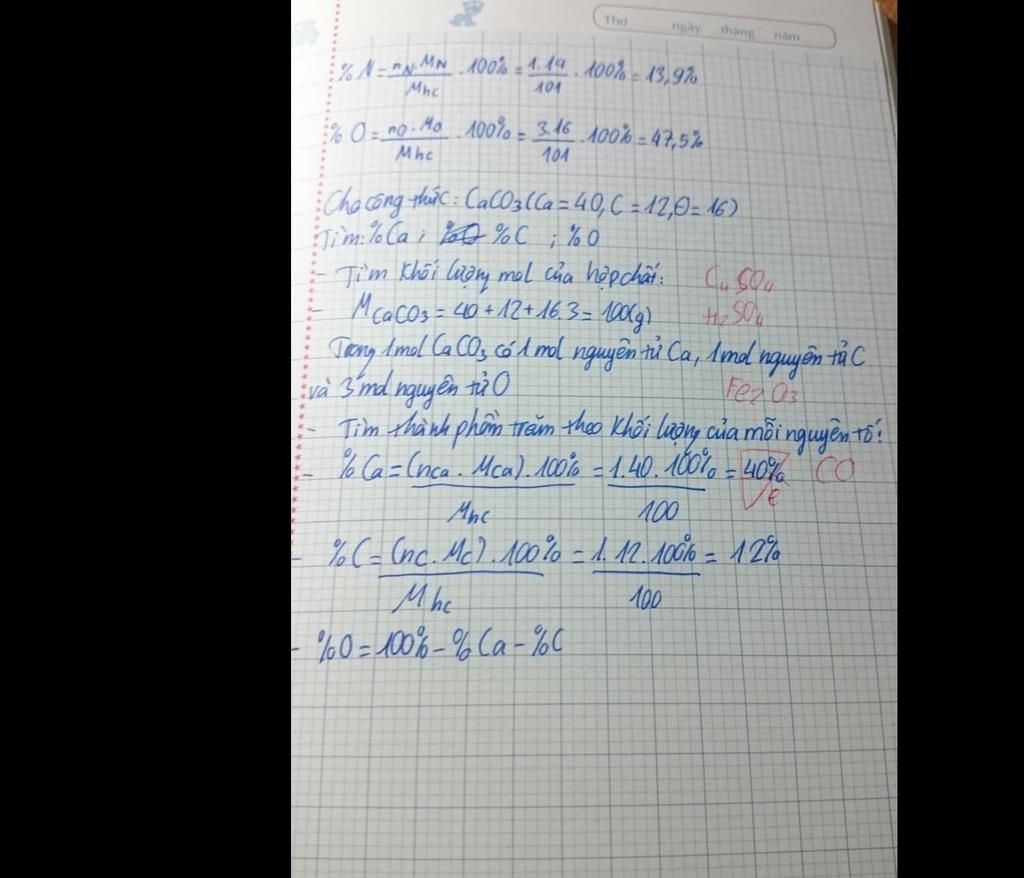 Thứ ngày tháng năm
% N = nN.MN/Mhc . 100% = 1.14/101 . 100% = 13,9%
% O = nO.MO/Mhc . 100% = 3.16/101 . 100% = 47,5%
Cho công thức: CaCO3 (Ca = 40, C = 12, O = 16)
Tìm: %Ca ; %C ; %O
- Tìm khối lượng mol của hợp chất: CuSO4
- MCaCO3 = 40 + 12 + 16.3 = 100(g) H2SO4
Trong 1 mol CaCO3 có 1 mol nguyên tử Ca, 1 mol nguyên tử C
và 3 mol nguyên tử O Fe2O3
- Tìm thành phần trăm theo khối lượng của mỗi nguyên tố:
- %Ca = (nca . Mca) . 100%/Mhc = 1.40.100%/100 = 40% CO
- %C = (nc . Mc) . 100%/Mhc = 1.12.100%/100 = 12%
- %O = 100% - %Ca - %C